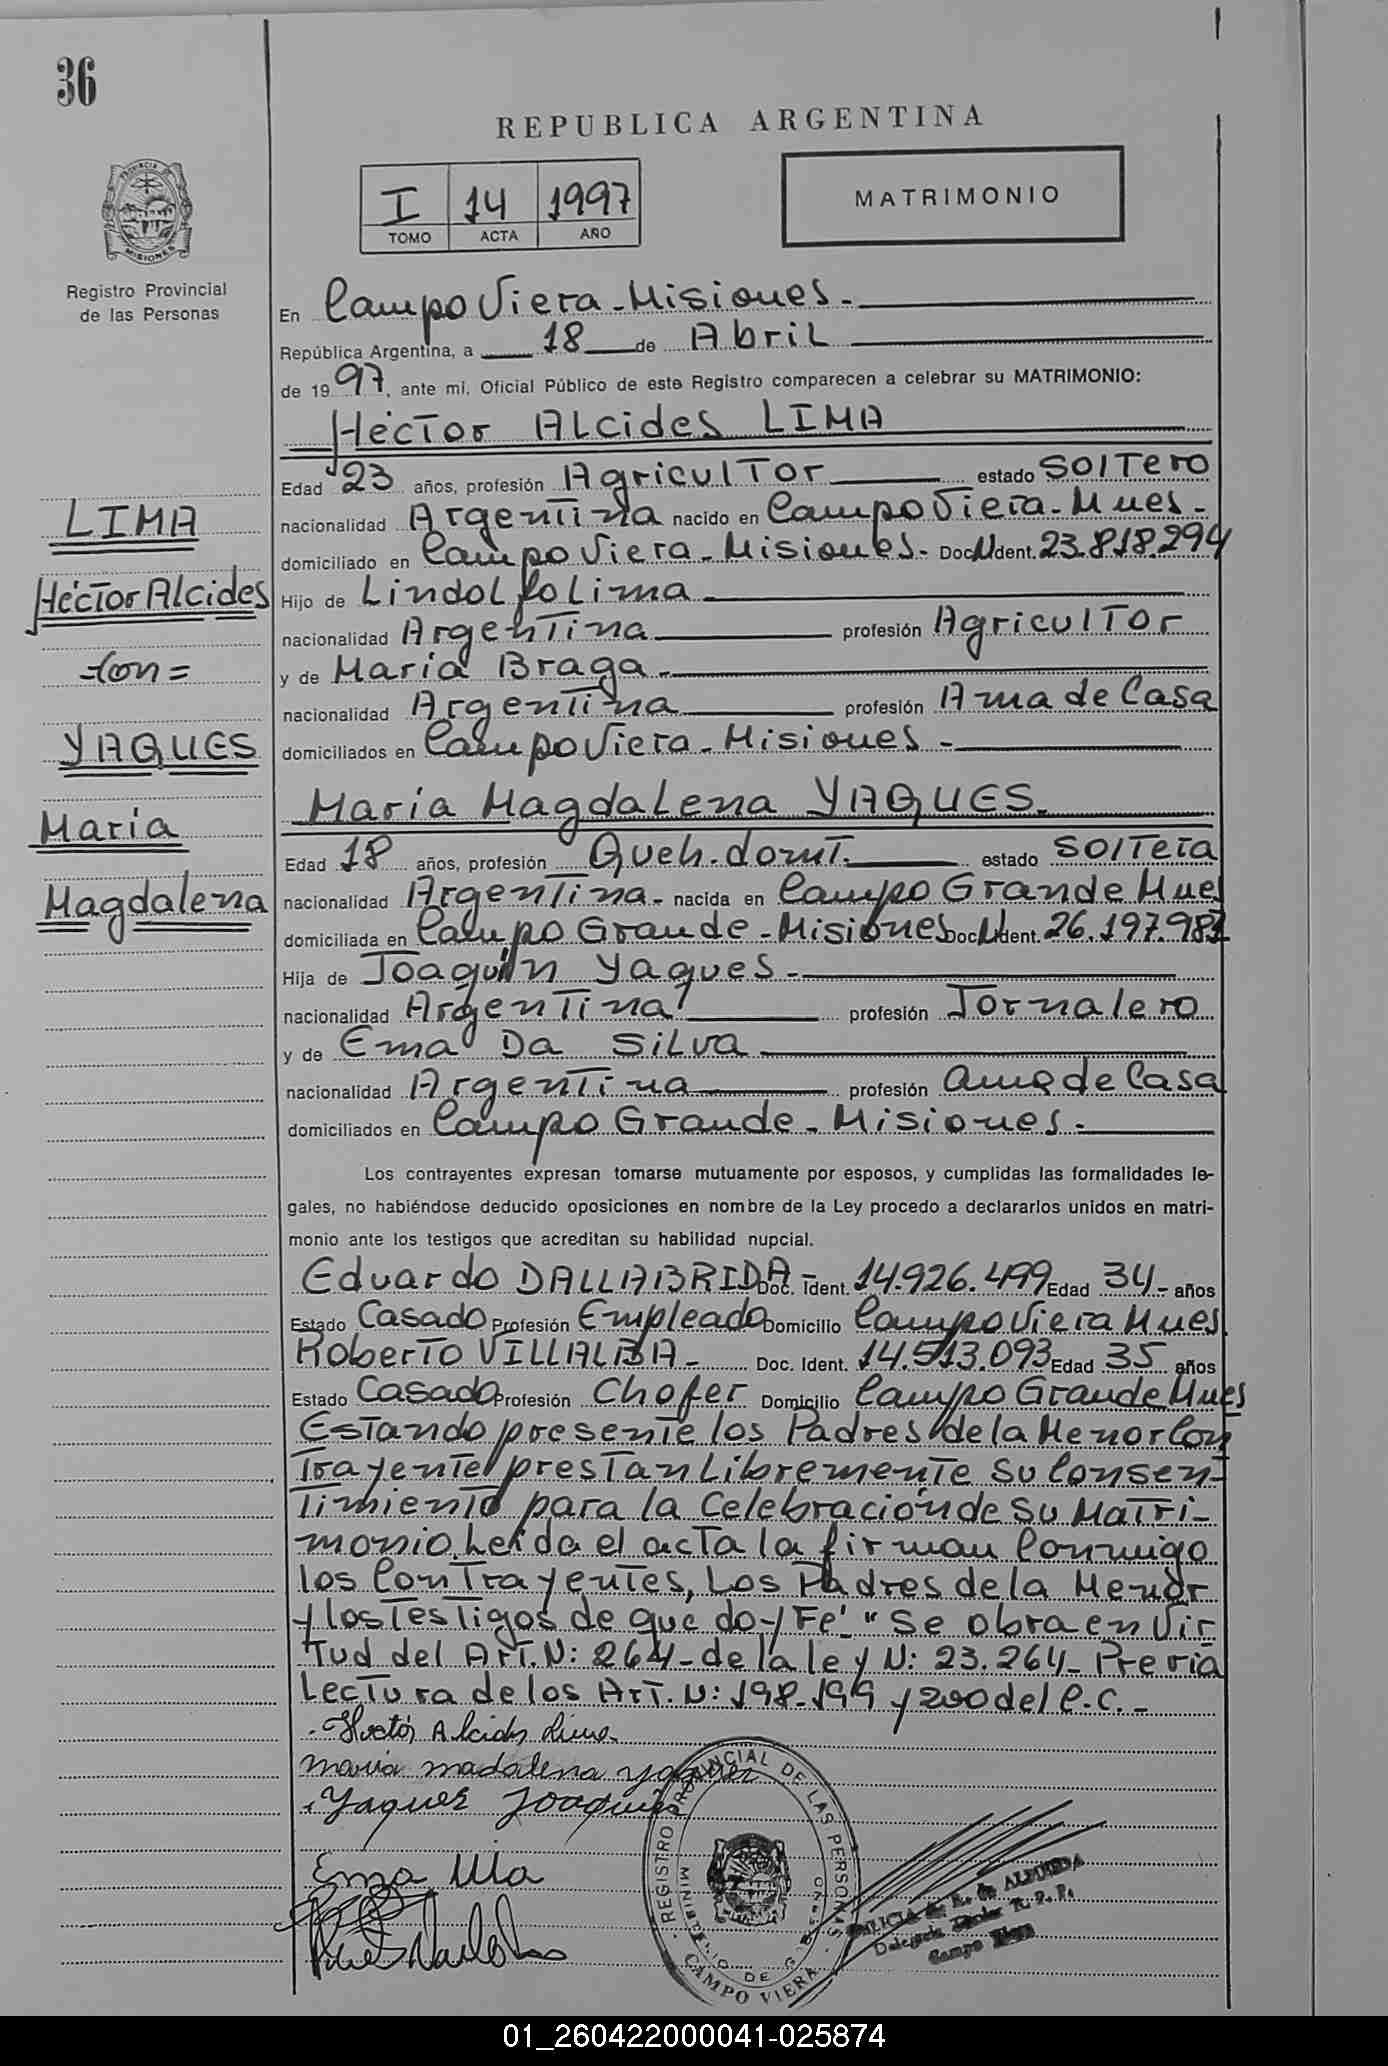 36
REPUBLICA ARGENTINA
I 14 1997
TOMO ACTA AÑO
MATRIMONIO
PROVINCIA DE MISIONES
Registro Provincial
de las Personas
En Campo Viera - Misiones -
República Argentina, a 18 de Abril
de 19 97, ante mi, Oficial Público de este Registro comparecen a celebrar su MATRIMONIO:
Héctor Alcides LIMA
Edad 23 años, profesión Agricultor estado Soltero
nacionalidad Argentina nacido en Campo Viera - Mnes -
domiciliado en Campo Viera - Misiones - Doc. Ident. 23.818.294
Hijo de Lindolfo Lima
nacionalidad Argentina profesión Agricultor
y de María Braga -
nacionalidad Argentina profesión Ama de Casa
domiciliados en Campo Viera - Misiones -
María Magdalena YAQUES -
Edad 18 años, profesión Queh. domt. estado Soltera
nacionalidad Argentina - nacida en Campo Grande Mnes
domiciliada en Campo Grande - Misiones Doc. Ident. 26.197.981
Hija de Joaquín Yaques -
nacionalidad Argentina profesión Jornalero
y de Ema Da Silva
nacionalidad Argentina profesión ama de Casa
domiciliados en Campo Grande - Misiones -
LIMA
Héctor Alcides
=Con=
YAQUES
María
Magdalena
Los contrayentes expresan tomarse mutuamente por esposos, y cumplidas las formalidades le-
gales, no habiéndose deducido oposiciones en nombre de la Ley procedo a declararlos unidos en matri-
monio ante los testigos que acreditan su habilidad nupcial.
Eduardo DALLABRIDA - Doc. Ident. 14.926.499 Edad 34 - años
Estado Casado Profesión Empleado Domicilio Campo Viera Mnes
Roberto VILLALBA - Doc. Ident. 14.513.093 Edad 35 años
Estado Casado Profesión Chofer Domicilio Campo Grande Mnes
Estando presente los Padres de la Menor Con
trayente prestan Libremente su Consen-
timiento para la Celebración de su Matri-
monio. Leida el acta la firman Conmigo
los Contrayentes, Los Padres de la Menor
y los Testigos de que doy Fé "Se obra en Vir
tud del Art. N: 264 - de la ley N: 23.264 - Previa
Lectura de los Art. N: 198-199 y 200 del C.C. -
Hector Alcides Lima
maria madalena yaques
Yaques Joaquin
Ema
REGISTRO PROVINCIAL DE LAS PERSONAS
MINISTERIO DE GOBIERNO
CAMPO VIERA
DE ALMEIDA
Campo Viera
01_260422000041-025874